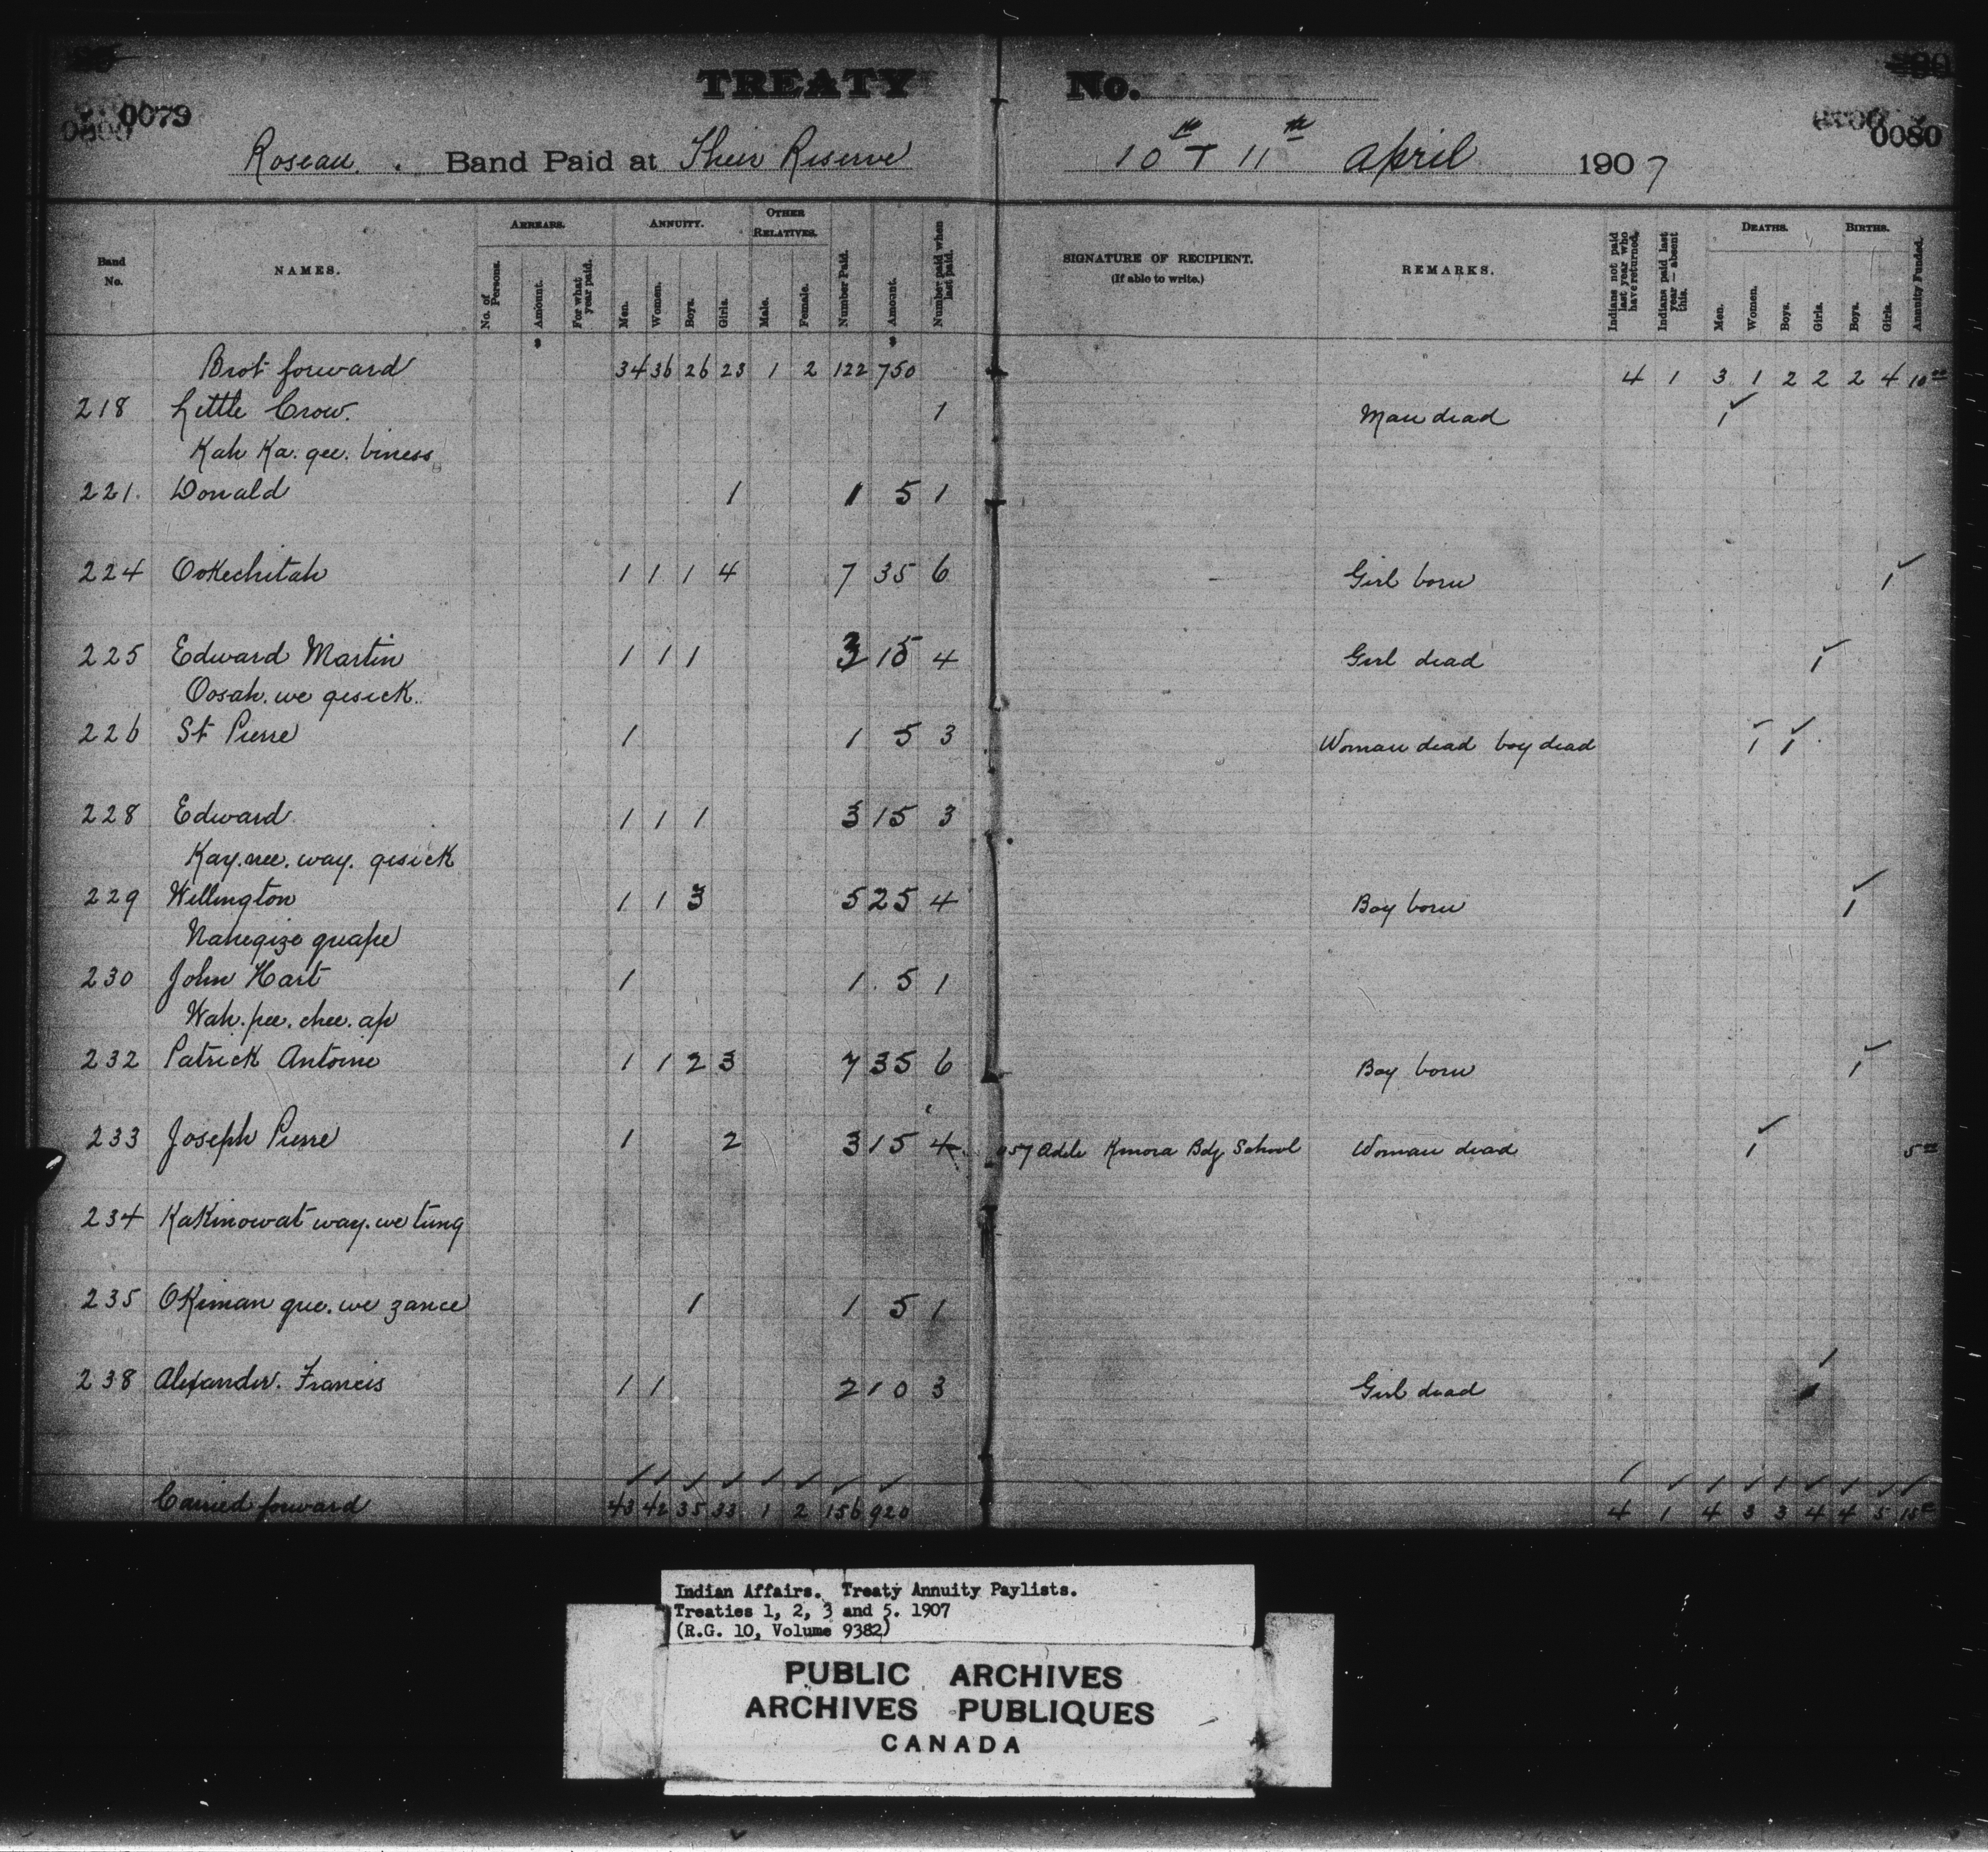 TREATY No.
0079
0080
Roseau. Band Paid at Their Reserve 10th & 11th April 1907
Band No.
NAMES.
ARREARS.
No. of Persons.
Amount.
For what year paid.
ANNUITY.
Men.
Women.
Boys.
Girls.
OTHER RELATIVES.
Male.
Female.
Number Paid.
Amount.
Number paid when last paid.
SIGNATURE OF RECIPIENT.
(If able to write.)
REMARKS.
Indians not paid last year who have returned.
Indians paid last year — absent this.
DEATHS.
Men.
Women.
Boys.
Girls.
BIRTHS.
Boys.
Girls.
Annuity Funded.
$ $
Brot forward 34 36 26 23 1 2 122 750 4 1 3 1 2 2 2 4 10 00
218 Little Crow. 1 Man dead 1
Kah Ka. gee. biness
221. Donald 1 1 5 1
224 Ookechitah 1 1 1 4 7 35 6 Girl born 1
225 Edward Martin 1 1 1 3 15 4 Girl dead 1
Oosah. we gesick.
226 St Pierre 1 1 5 3 Woman dead boy dead 1 1
228 Edward 1 1 1 3 15 3
Kay. nee. way. gesick
229 Wellington 1 1 3 5 25 4 Boy born 1
Nahegize quape
230 John Hart 1 1 5 1
Wah. pee. chee. ap
232 Patrick Antoine 1 1 2 3 7 35 6 Boy born 1
233 Joseph Pierre 1 2 3 15 4 057 Adele Kenora Bdg School Woman dead 1 5 00
234 Kakinowat way. we tung
235 Okeman que. we zance 1 1 5 1
238 Alexander. Francis 1 1 2 10 3 Girl dead 1
Carried forward 43 42 35 33 1 2 156 920 4 1 4 3 3 4 4 5 15
Indian Affairs. Treaty Annuity Paylists.
Treaties 1, 2, 3 and 5. 1907
(R.G. 10, Volume 9382)
PUBLIC ARCHIVES
ARCHIVES PUBLIQUES
CANADA